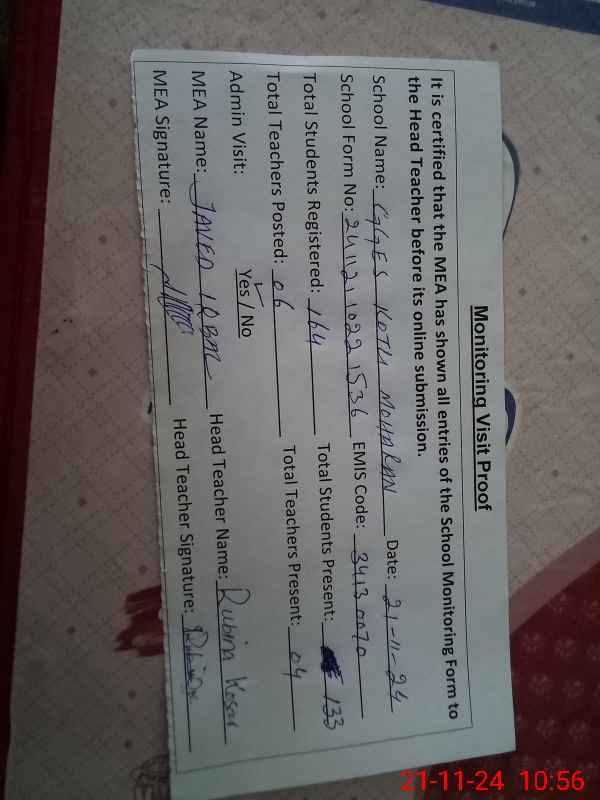 Monitoring Visit Proof
It is certified that the MEA has shown all entries of the School Monitoring Form to
the Head Teacher before its online submission.
School Name: GGES KOTLI MOHARAN Date: 21-11-24
School Form No: 24112110221536 EMIS Code: 34130070
Total Students Registered: 164 Total Students Present: 133
Total Teachers Posted: 06 Total Teachers Present: 04
Admin Visit: Yes / No
MEA Name: JAVED IQBAL Head Teacher Name: Rubina Kosar
MEA Signature: Head Teacher Signature: Rubina
21-11-24 10:56